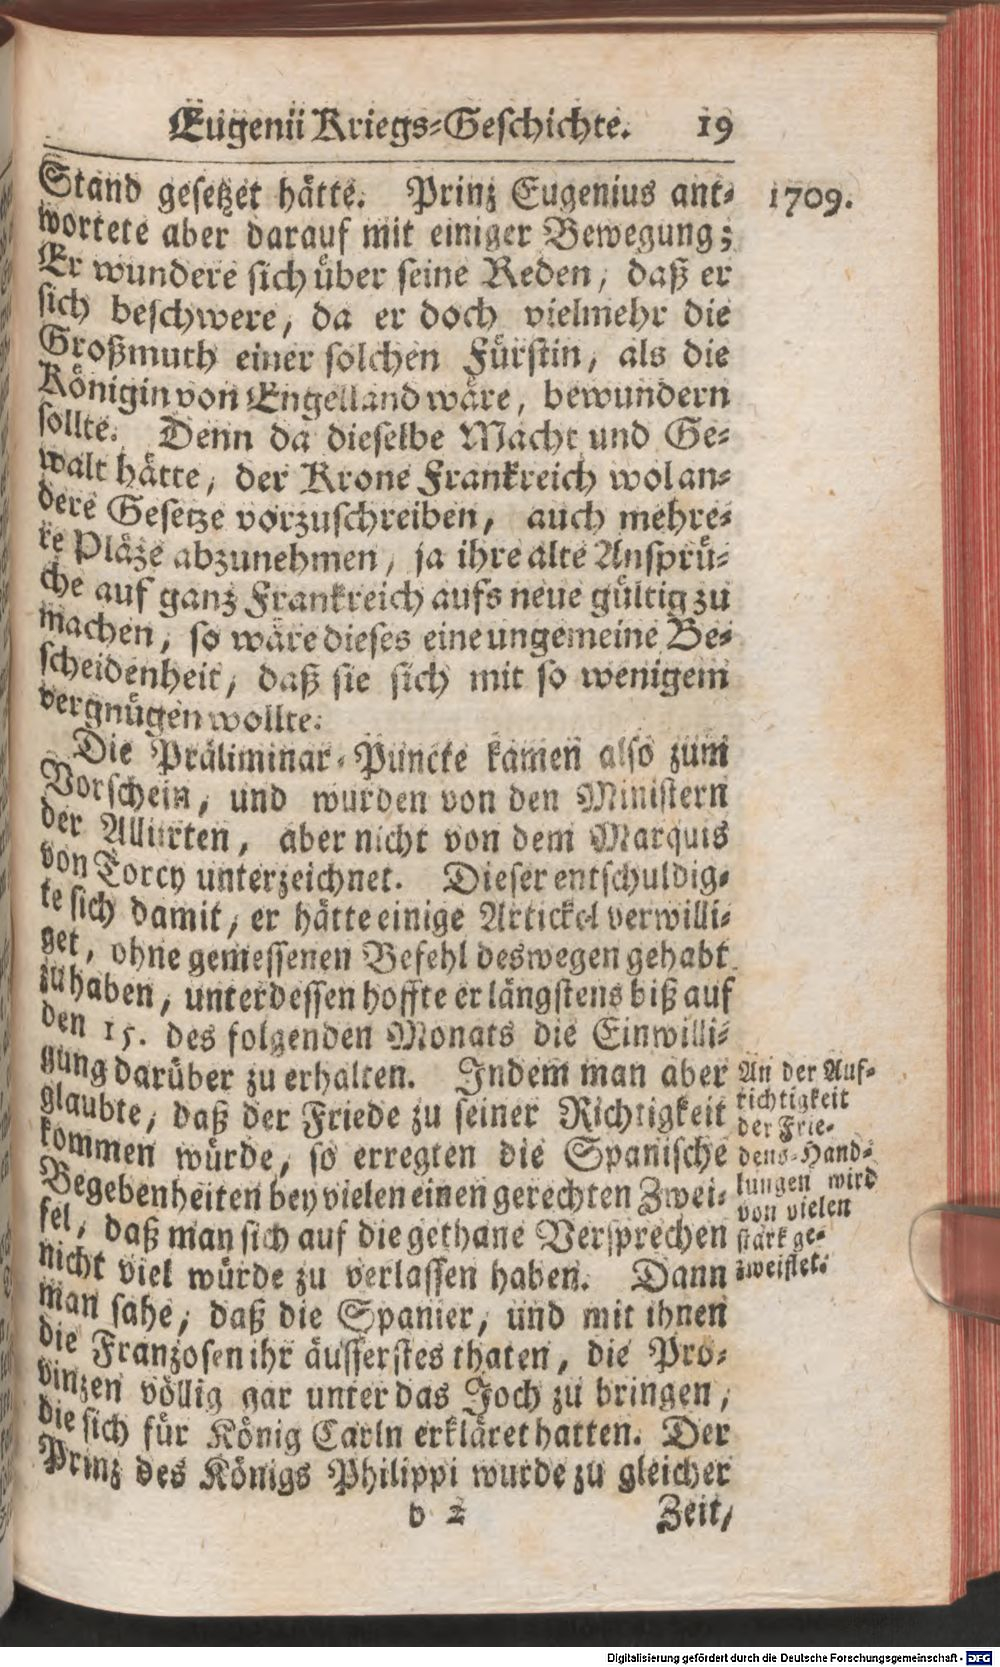 Eugenii Kriegs-Geschichte. 19
1709.
Stand gesetzet hätte. Prinz Eugenius ant-
wortete aber darauf mit einiger Bewegung;
Er wundere sich über seine Reden, daß er
sich beschwere, da er doch vielmehr die
Großmuth einer solchen Fürstin, als die
Königin von Engelland wäre, bewundern
sollte. Denn da dieselbe Macht und Ge-
walt hätte, der Krone Frankreich wol an-
dere Gesetze vorzuschreiben, auch mehre-
re Pläze abzunehmen, ja ihre alte Ansprü-
che auf ganz Frankreich aufs neue gültig zu
machen, so wäre dieses eine ungemeine Be-
scheidenheit, daß sie sich mit so wenigem
vergnügen wollte.
Die Präliminar-Puncte kamen also zum
Vorschein, und wurden von den Ministern
der Alliirten, aber nicht von dem Marquis
von Torcy unterzeichnet. Dieser entschuldig-
te sich damit, er hätte einige Artickel verwilli-
get, ohne gemessenen Befehl deswegen gehabt
zu haben, unterdessen hoffte er längstens biß auf
den 15. des folgenden Monats die Einwilli-
gung darüber zu erhalten. Indem man aber
glaubte, daß der Friede zu seiner Richtigkeit
kommen würde, so erregten die Spanische
Begebenheiten bey vielen einen gerechten Zwei-
fel, daß man sich auf die gethane Versprechen
nicht viel würde zu verlassen haben. Dann
man sahe, daß die Spanier, und mit ihnen
die Franzosen ihr äusserstes thaten, die Pro-
vinzen völlig gar unter das Joch zu bringen,
die sich für König Carln erkläret hatten. Der
Prinz des Königs Philippi wurde zu gleicher
An der Auf-
richtigkeit
der Frie-
dens-Hand-
lungen wird
von vielen
stark ge-
zweiflet.
b 2 Zeit,
Digitalisierung gefördert durch die Deutsche Forschungsgemeinschaft - DFG